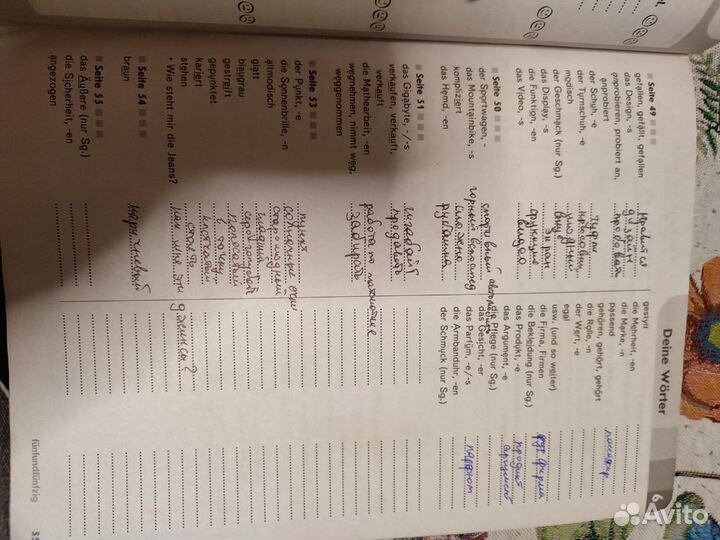 Deine Wörter
6
Seite 49
gefallen, gefällt, gefallen нравится
das Design, -s дизайн
anprobieren, probiert an,
anprobiert
der Schuh, -e туфли
der Turnschuh, -e кроссовки
modisch модный
der Geschmack (nur Sg.) вкус
das Display, -s экран
die Funktion, -en функция
das Video, -s видео
Seite 50
der Sportwagen, - спортивный автомобиль
das Mountainbike, -s горный велосипед
kompliziert сложно
das Hemd, -en рубашка
Seite 51
das Gigabyte, -/-s гигабайт
verkaufen, verkauft, продавать
verkauft
die Mathearbeit, -en работа по математике
wegnehmen, nimmt weg, забирать
weggenommen
Seite 53
der Punkt, -e пункт
die Sonnenbrille, -n солнечные очки
altmodisch старомодный
glatt гладкий
blaugrau серо-голубой
gestreift полосатый
gepunktet в точку
kariert клетчатый
stehen стоять
• Wie steht mir die Jeans? как мне эти джинсы?
Seite 54
braun коричневый
Seite 55
das Äußere (nur Sg.)
die Sicherheit, -en
angezogen
gestylt
die Mehrheit, -en
die Marke, -n
passend
gehören, gehört, gehört
die Rolle, -n
der Wert, -e
egal
usw. (und so weiter)
die Firma, Firmen фирма
die Bekleidung (nur Sg.)
das Produkt, -e продукт
das Argument, -e аргумент
die Pflege (nur Sg.)
das Gesicht, -er
das Parfüm, -e/-s парфюм
die Armbanduhr, -en
der Schmuck (nur Sg.)
fünfundfünfzig
55
Avito